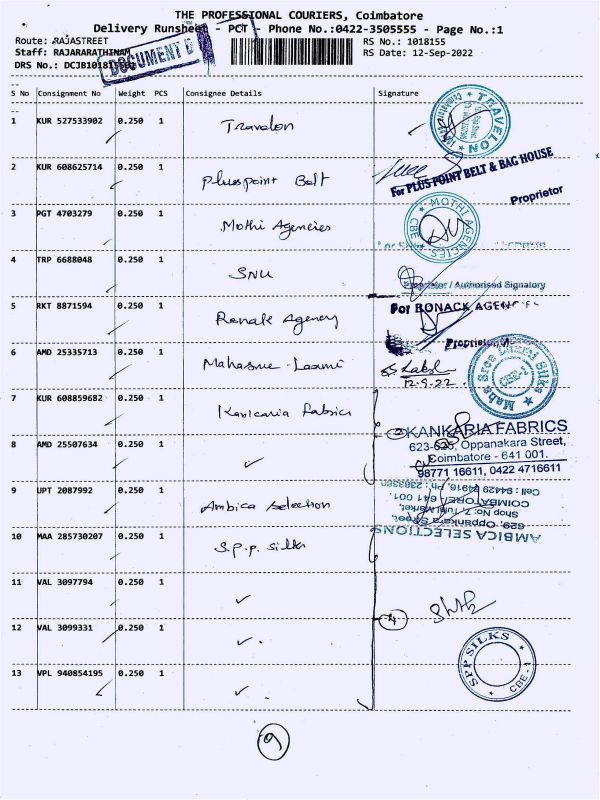 THE PROFESSIONAL COURIERS, Coimbatore
Delivery Runsheet - PCT - Phone No.:0422-3505555 - Page No.:1
Route: RAJASTREET
RS No.: 1018155
Staff: RAJARARATHINAM
RS Date: 12-Sep-2022
DRS No.: DCJB1018155
DOCUMENT D
S No Consignment No Weight PCS Consignee Details Signature
1 KUR 527533902 0.250 1 Travelon
TRAVELON
2 KUR 608625714 0.250 1 Pluspoint Belt
For PLUS POINT BELT & BAG HOUSE
Proprietor
3 PGT 4703279 0.250 1 Mothi Agencies
MOTHI AGENCIES CBE
4 TRP 6688048 0.250 1 SNU
Proprietor / Authorised Signatory
5 RKT 8871594 0.250 1 Ronak Agency
For RONACK AGEN
Proprietor
6 AMD 25335713 0.250 1 Mahasree Laxmi
12.9.22
Maha Sree Laxmi Silks
7 KUR 608859682 0.250 1 Kankaria Fabrics
2 KANKARIA FABRICS
623-625, Oppanakara Street,
Coimbatore - 641 001.
98771 16611, 0422 4716611
8 AMD 25507634 0.250 1 ✓
9 UPT 2087992 0.250 1 Ambica Selection
AMBICA SELECTIONS
629, Oppankara Street,
Shop No: 7, Market,
COIMBATORE - 641 001.
10 MAA 285730207 0.250 1 S.P.P. Silks
11 VAL 3097794 0.250 1 ✓
12 VAL 3099331 0.250 1 ✓
4
SPP SILKS CBE - 1
13 VPL 940854195 0.250 1 ✓
9